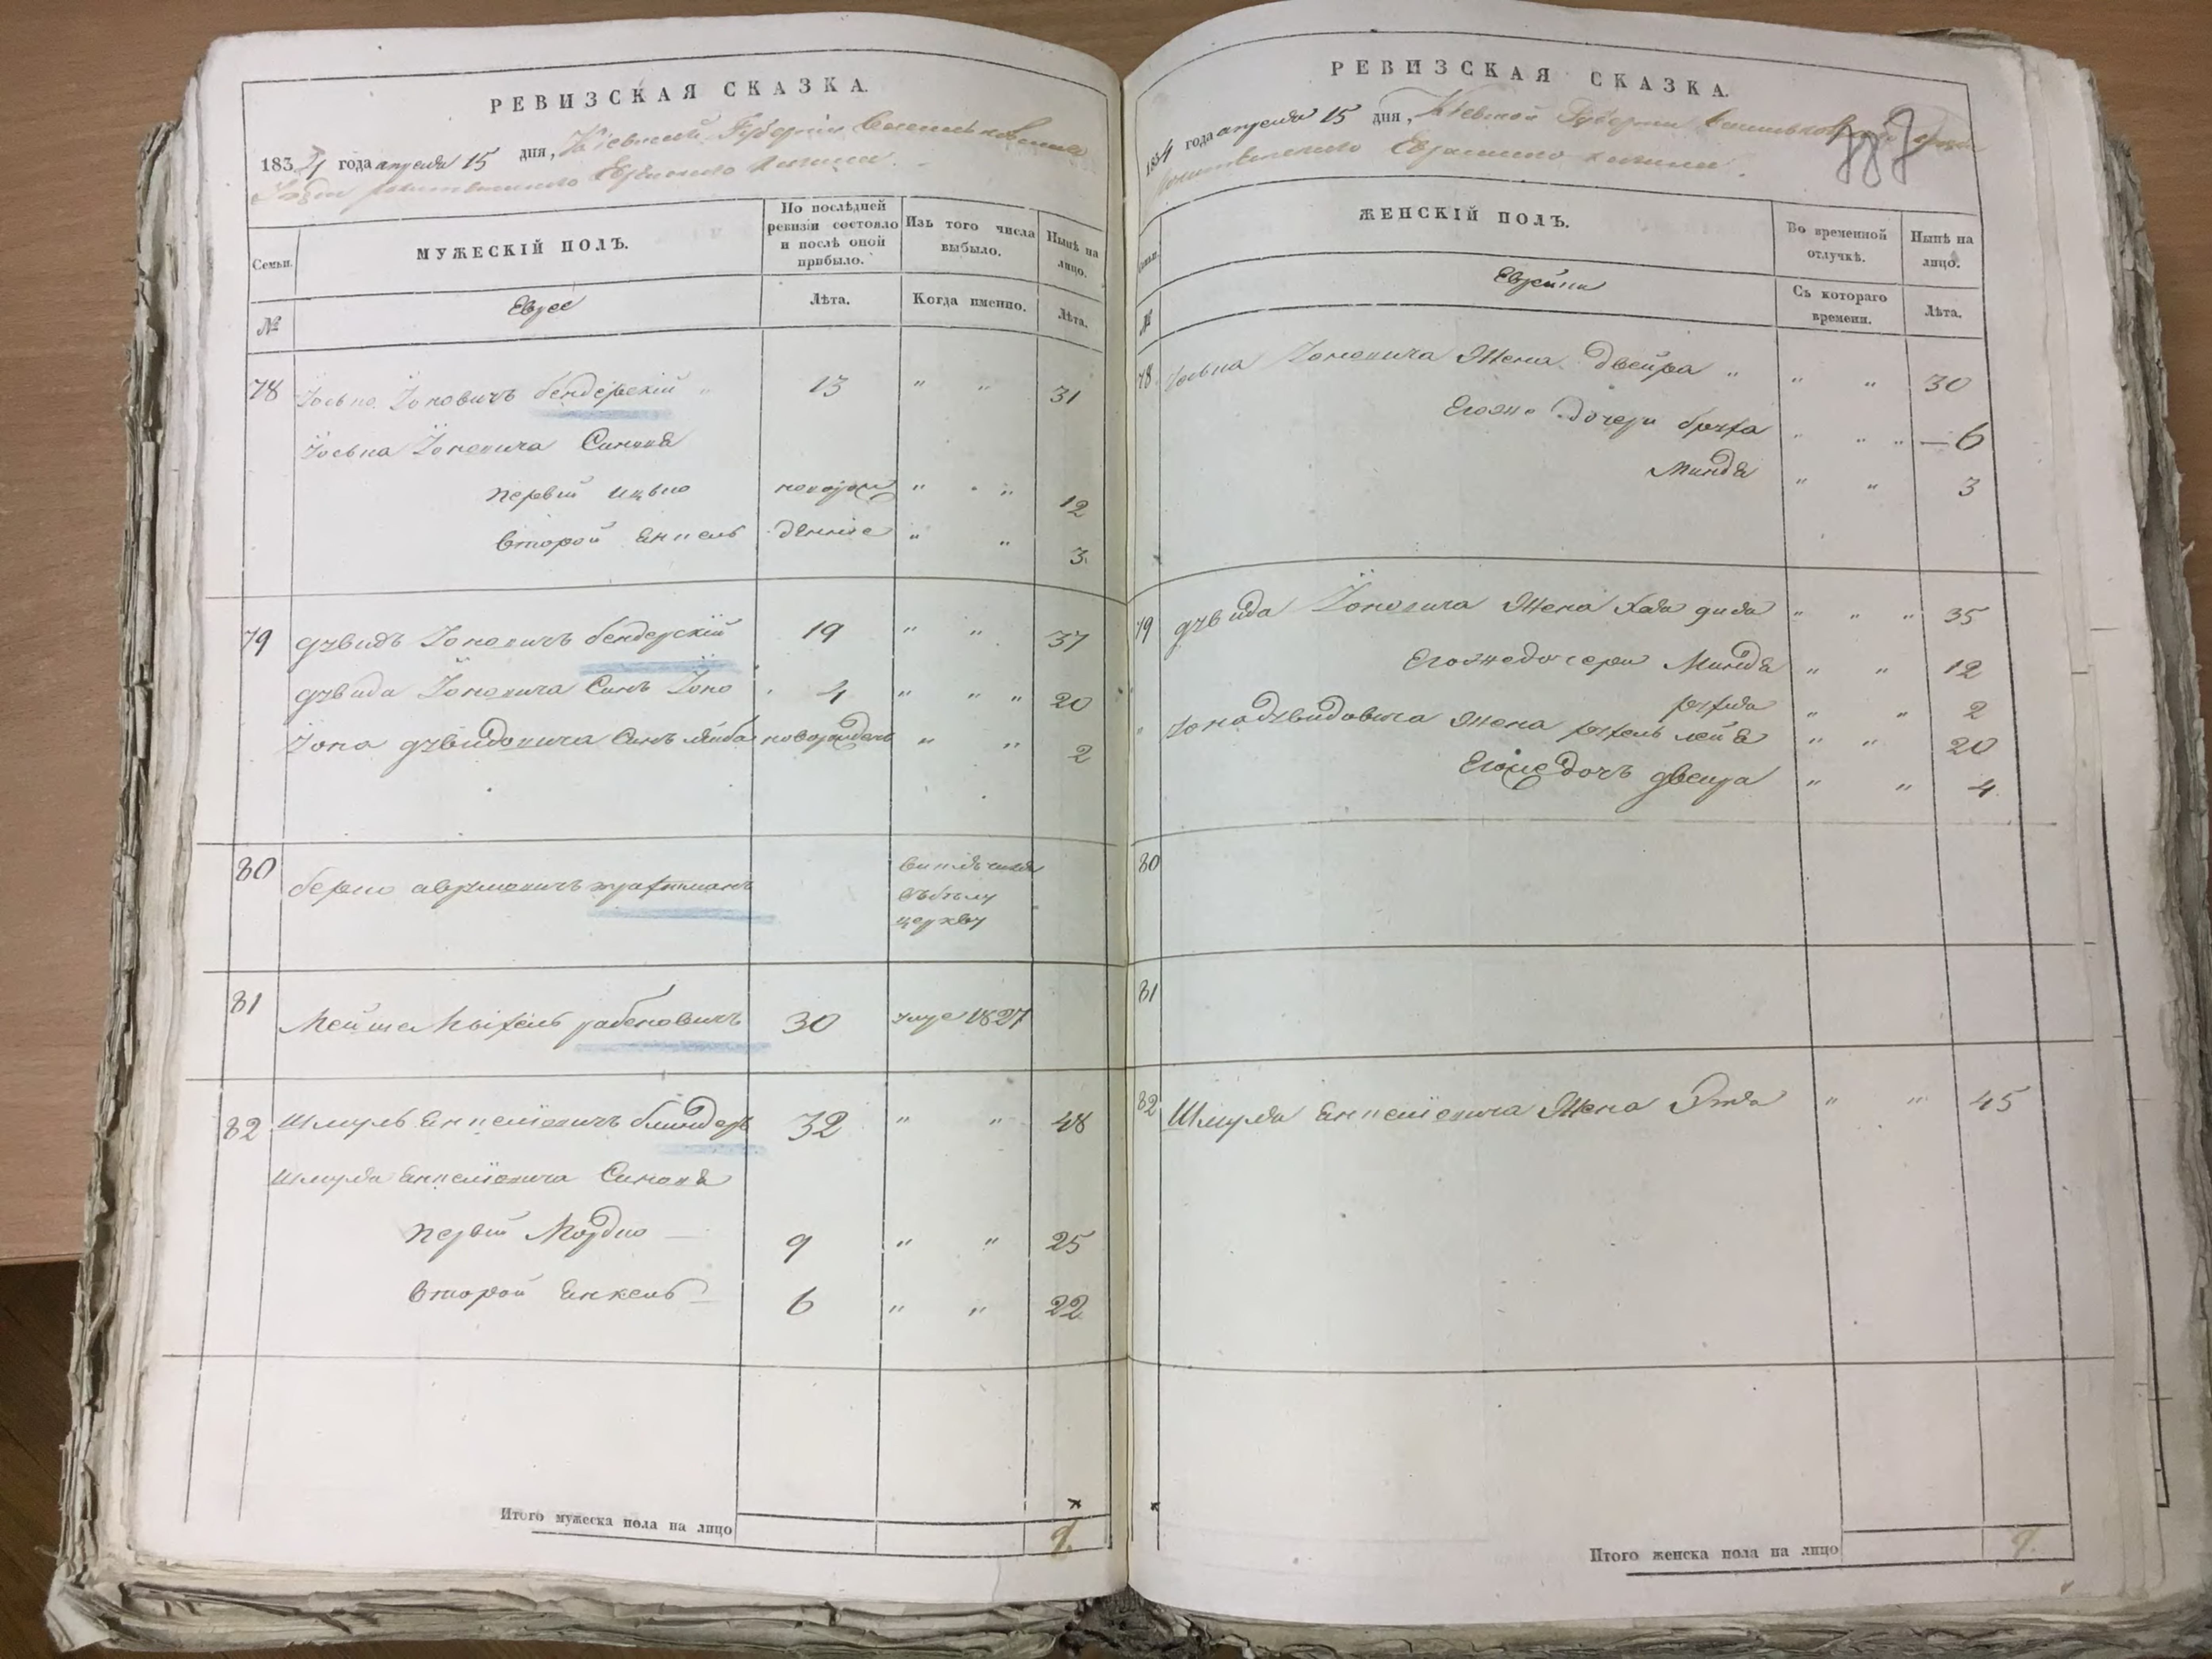 РЕВИЗСКАЯ СКАЗКА.
1834 года апреля 15 дня, Кіевской Губерніи
Еврейского
Семьи.
МУЖЕСКІЙ ПОЛЪ.
По послѣдней ревизіи состояло и послѣ оной прибыло.
Изъ того числа выбыло.
Нынѣ на лицо.
№
Евреи
Лѣта.
Когда именно.
Лѣта.
78 Іосько Іоновичъ бендерскій " 13 " " 31
Іоська Іоновича Синовя
первій Ицько новорож " " 12
Второй Енкель денніе " " 3
79 Дувидъ Іоновичъ бендерскій 19 " " 37
Дувида Іоновича Синъ Іоно 4 " " " 20
Іона Дувидовича Синъ Лейба новорожденъ " " 2
80 берко аврумовичъ
церкву
81 Мейше Мыхель рабеновичъ 30 умре 1827
82 Шмуль Енкелiовичъ блиндеръ 32 " " 48
Шмуля Енкелiовича Синовя
первій Мордко 9 " " 25
Второй Енкель 6 " " 22
Итого мужеска пола на лицо 9.
РЕВИЗСКАЯ СКАЗКА.
1834 года апреля 15 дня, Кіевской Губерніи
Еврейского
ЖЕНСКІЙ ПОЛЪ.
Во временной отлучкѣ.
Нынѣ на лицо.
№
Еврейки
Съ котораго времени.
Лѣта.
78 Іоська Іоновича Жена Двейра " " " 30
Егоже дочери бруха " " " 6
Миндя " " 3
79 Дувида Іоновича Жена Хая " " " 35
Егоже дочери Миндя " " 12
рухля " " 2
Іона Дувидовича Жена рухель лейя " " 20
Егоже дочь двейра " " 4
80
81
82 Шмуля Енкелiовича Жена " " 45
Итого женска пола на лицо 9.